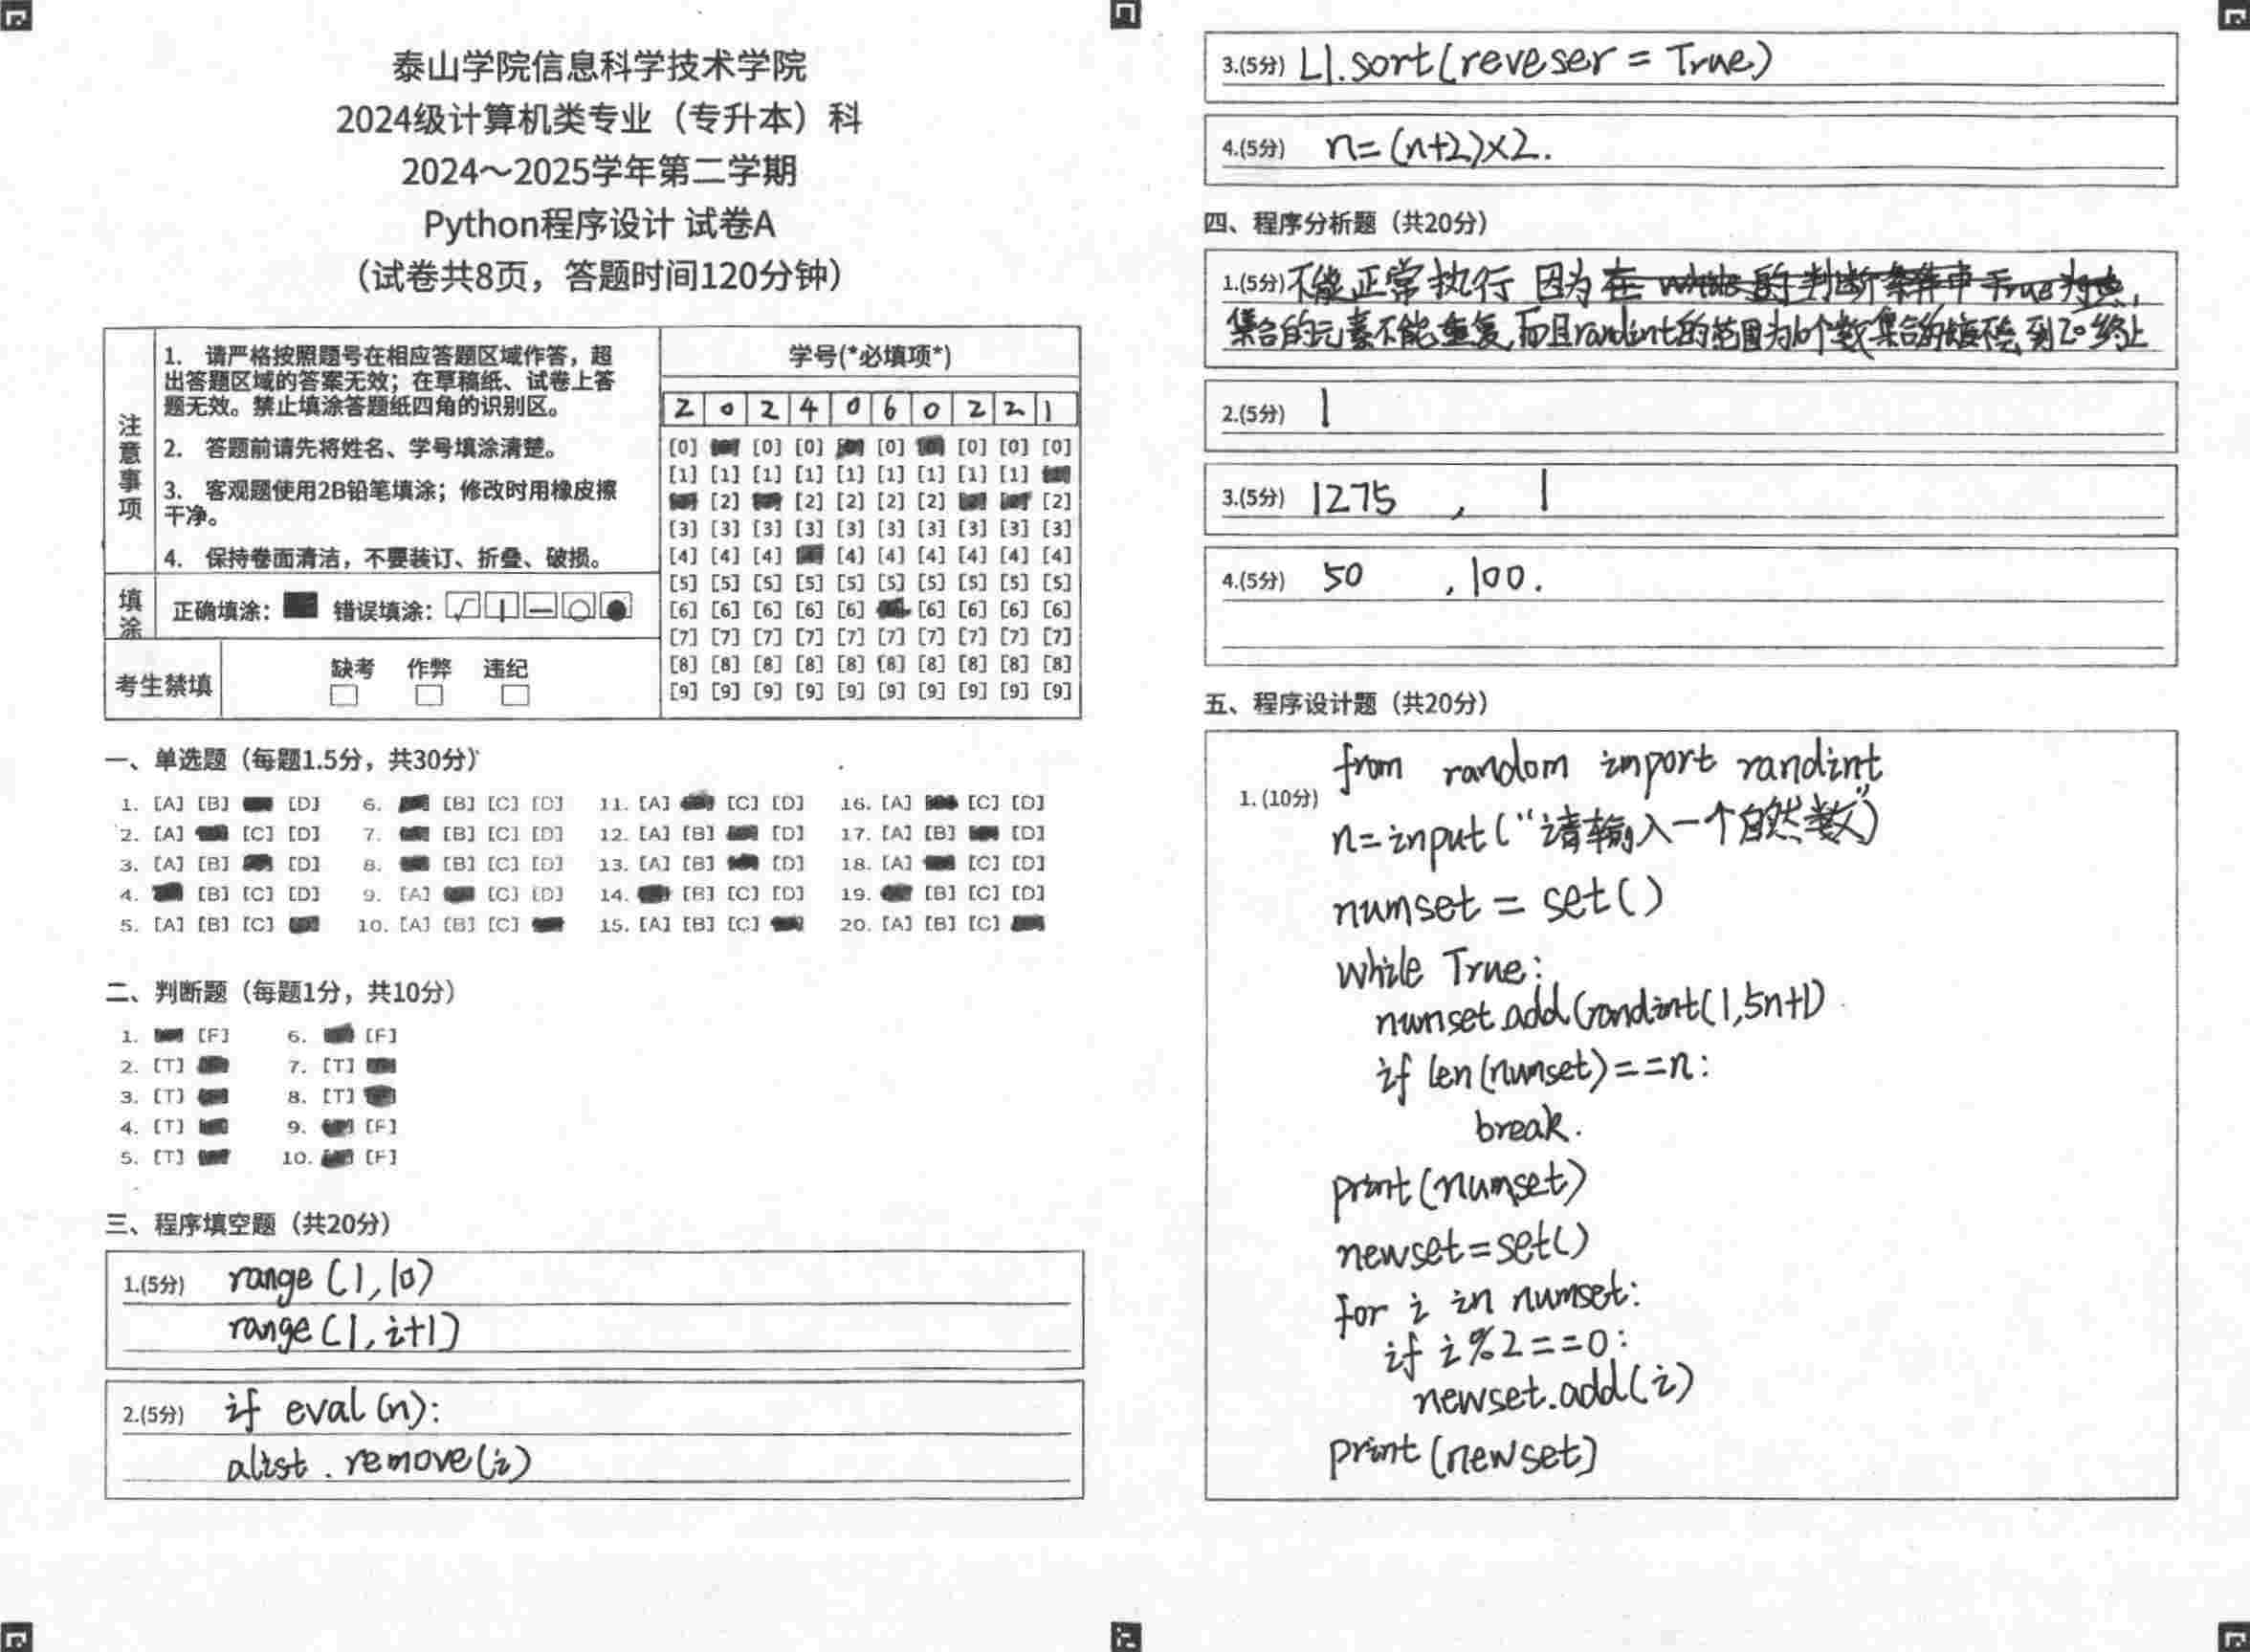 泰山学院信息科学技术学院
2024级计算机类专业（专升本）科
2024～2025学年第二学期
Python程序设计 试卷A
（试卷共8页，答题时间120分钟）
注意事项
1. 请严格按照题号在相应答题区域作答，超
出答题区域的答案无效；在草稿纸、试卷上答
题无效。禁止填涂答题纸四角的识别区。
2. 答题前请先将姓名、学号填涂清楚。
3. 客观题使用2B铅笔填涂；修改时用橡皮擦
干净。
4. 保持卷面清洁，不要装订、折叠、破损。
填涂
正确填涂： 错误填涂：
考生禁填
缺考 作弊 违纪
学号(*必填项*)
2 0 2 4 0 6 0 2 2 1
[0] [0] [0] [0] [0] [0] [0]
[1] [1] [1] [1] [1] [1] [1] [1] [1]
[2] [2] [2] [2] [2] [2]
[3] [3] [3] [3] [3] [3] [3] [3] [3] [3]
[4] [4] [4] [4] [4] [4] [4] [4] [4]
[5] [5] [5] [5] [5] [5] [5] [5] [5] [5]
[6] [6] [6] [6] [6] [6] [6] [6] [6]
[7] [7] [7] [7] [7] [7] [7] [7] [7] [7]
[8] [8] [8] [8] [8] [8] [8] [8] [8] [8]
[9] [9] [9] [9] [9] [9] [9] [9] [9] [9]
一、单选题（每题1.5分，共30分）
1. [A] [B] [D] 6. [B] [C] [D] 11. [A] [C] [D] 16. [A] [C] [D]
2. [A] [C] [D] 7. [B] [C] [D] 12. [A] [B] [D] 17. [A] [B] [D]
3. [A] [B] [D] 8. [B] [C] [D] 13. [A] [B] [D] 18. [A] [C] [D]
4. [B] [C] [D] 9. [A] [C] [D] 14. [B] [C] [D] 19. [B] [C] [D]
5. [A] [B] [C] 10. [A] [B] [C] 15. [A] [B] [C] 20. [A] [B] [C]
二、判断题（每题1分，共10分）
1. [F] 6. [F]
2. [T] 7. [T]
3. [T] 8. [T]
4. [T] 9. [F]
5. [T] 10. [F]
三、程序填空题（共20分）
1.(5分) range (1, 10)
range (1, i+1)
2.(5分) if eval (n):
alist . remove (i)
3.(5分) L1.sort(reveser = True)
4.(5分) n= (n+2)×2.
四、程序分析题（共20分）
1.(5分) 不能正常执行 因为 在 while 的 判断条件中 True 为
集合的元素不能重复,而且randint的范围为10个数集合的 到20终止
2.(5分) 1
3.(5分) 1275 , 1
4.(5分) 50 , 100.
五、程序设计题（共20分）
1. (10分)
from random import randint
n=input("请输入一个自然数")
numset = set()
while True:
numset.add(randint(1,5n+1)
if len(numset)==n:
break.
print(numset)
newset=set()
for i in numset:
if i%2==0:
newset.add(i)
print(newset)